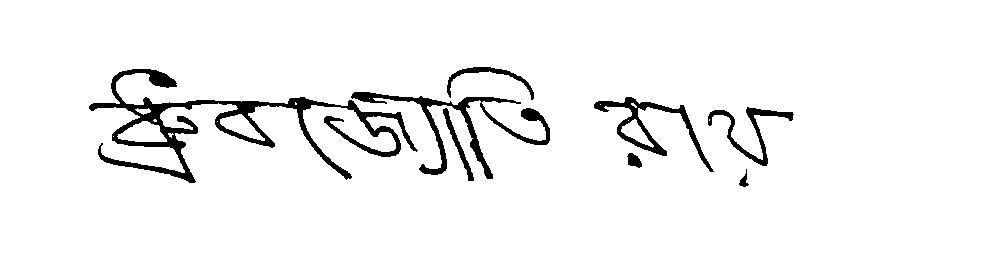 ধ্রুবজ্যোতি রায়